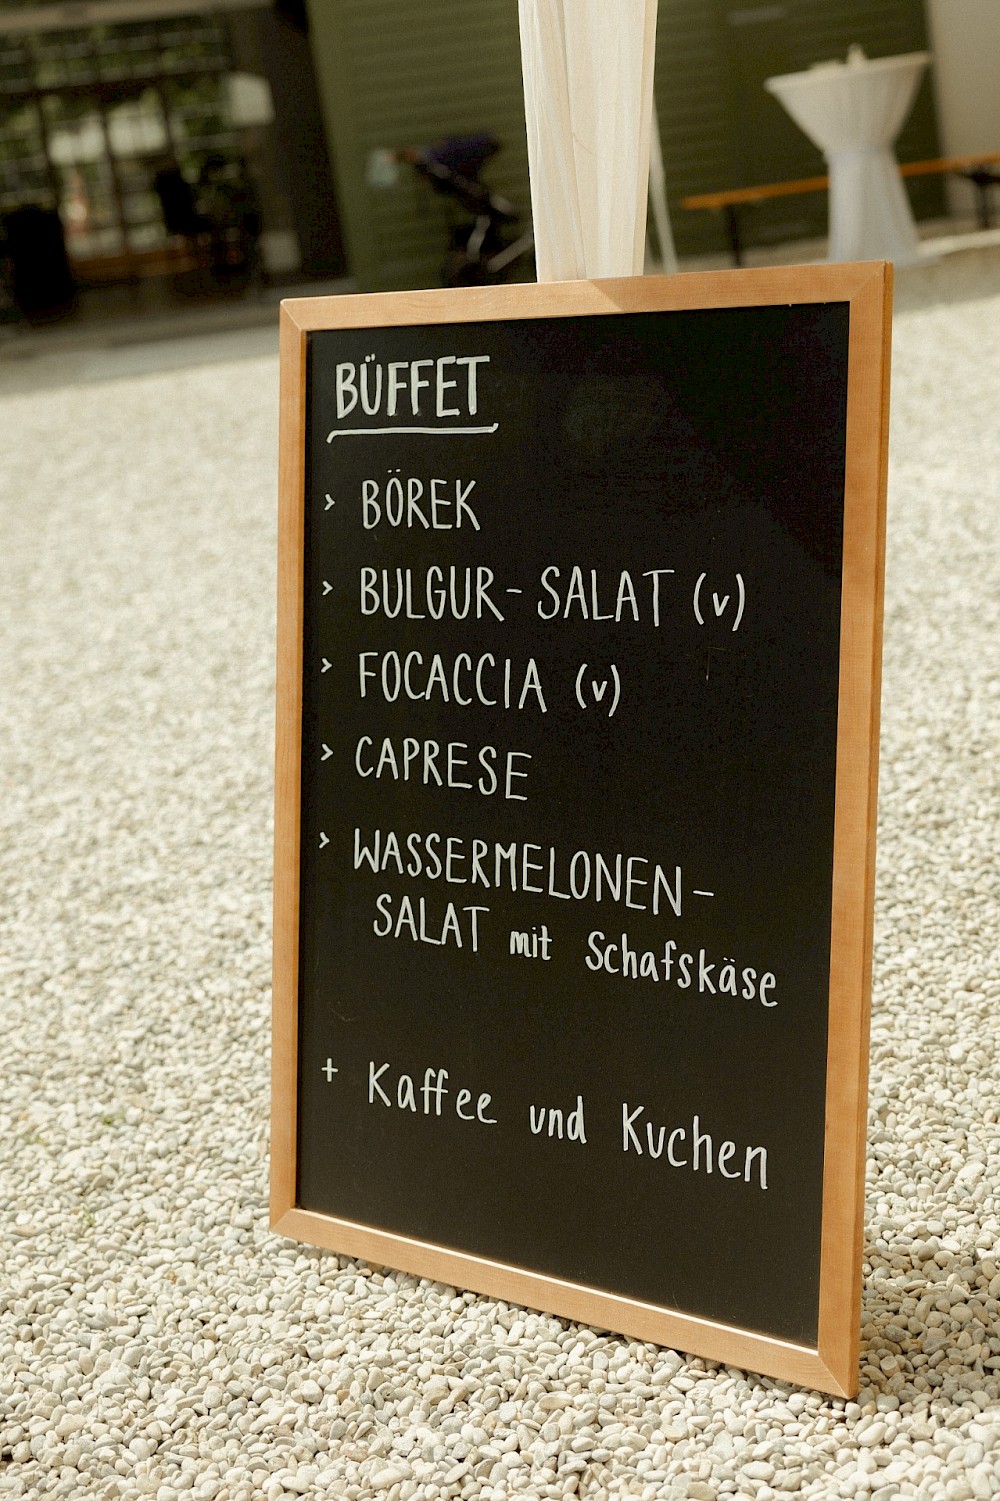 BÜFFET
> BÖREK
> BULGUR-SALAT (v)
> FOCACCIA (v)
> CAPRESE
> WASSERMELONEN-
SALAT mit Schafskäse
+ Kaffee und Kuchen